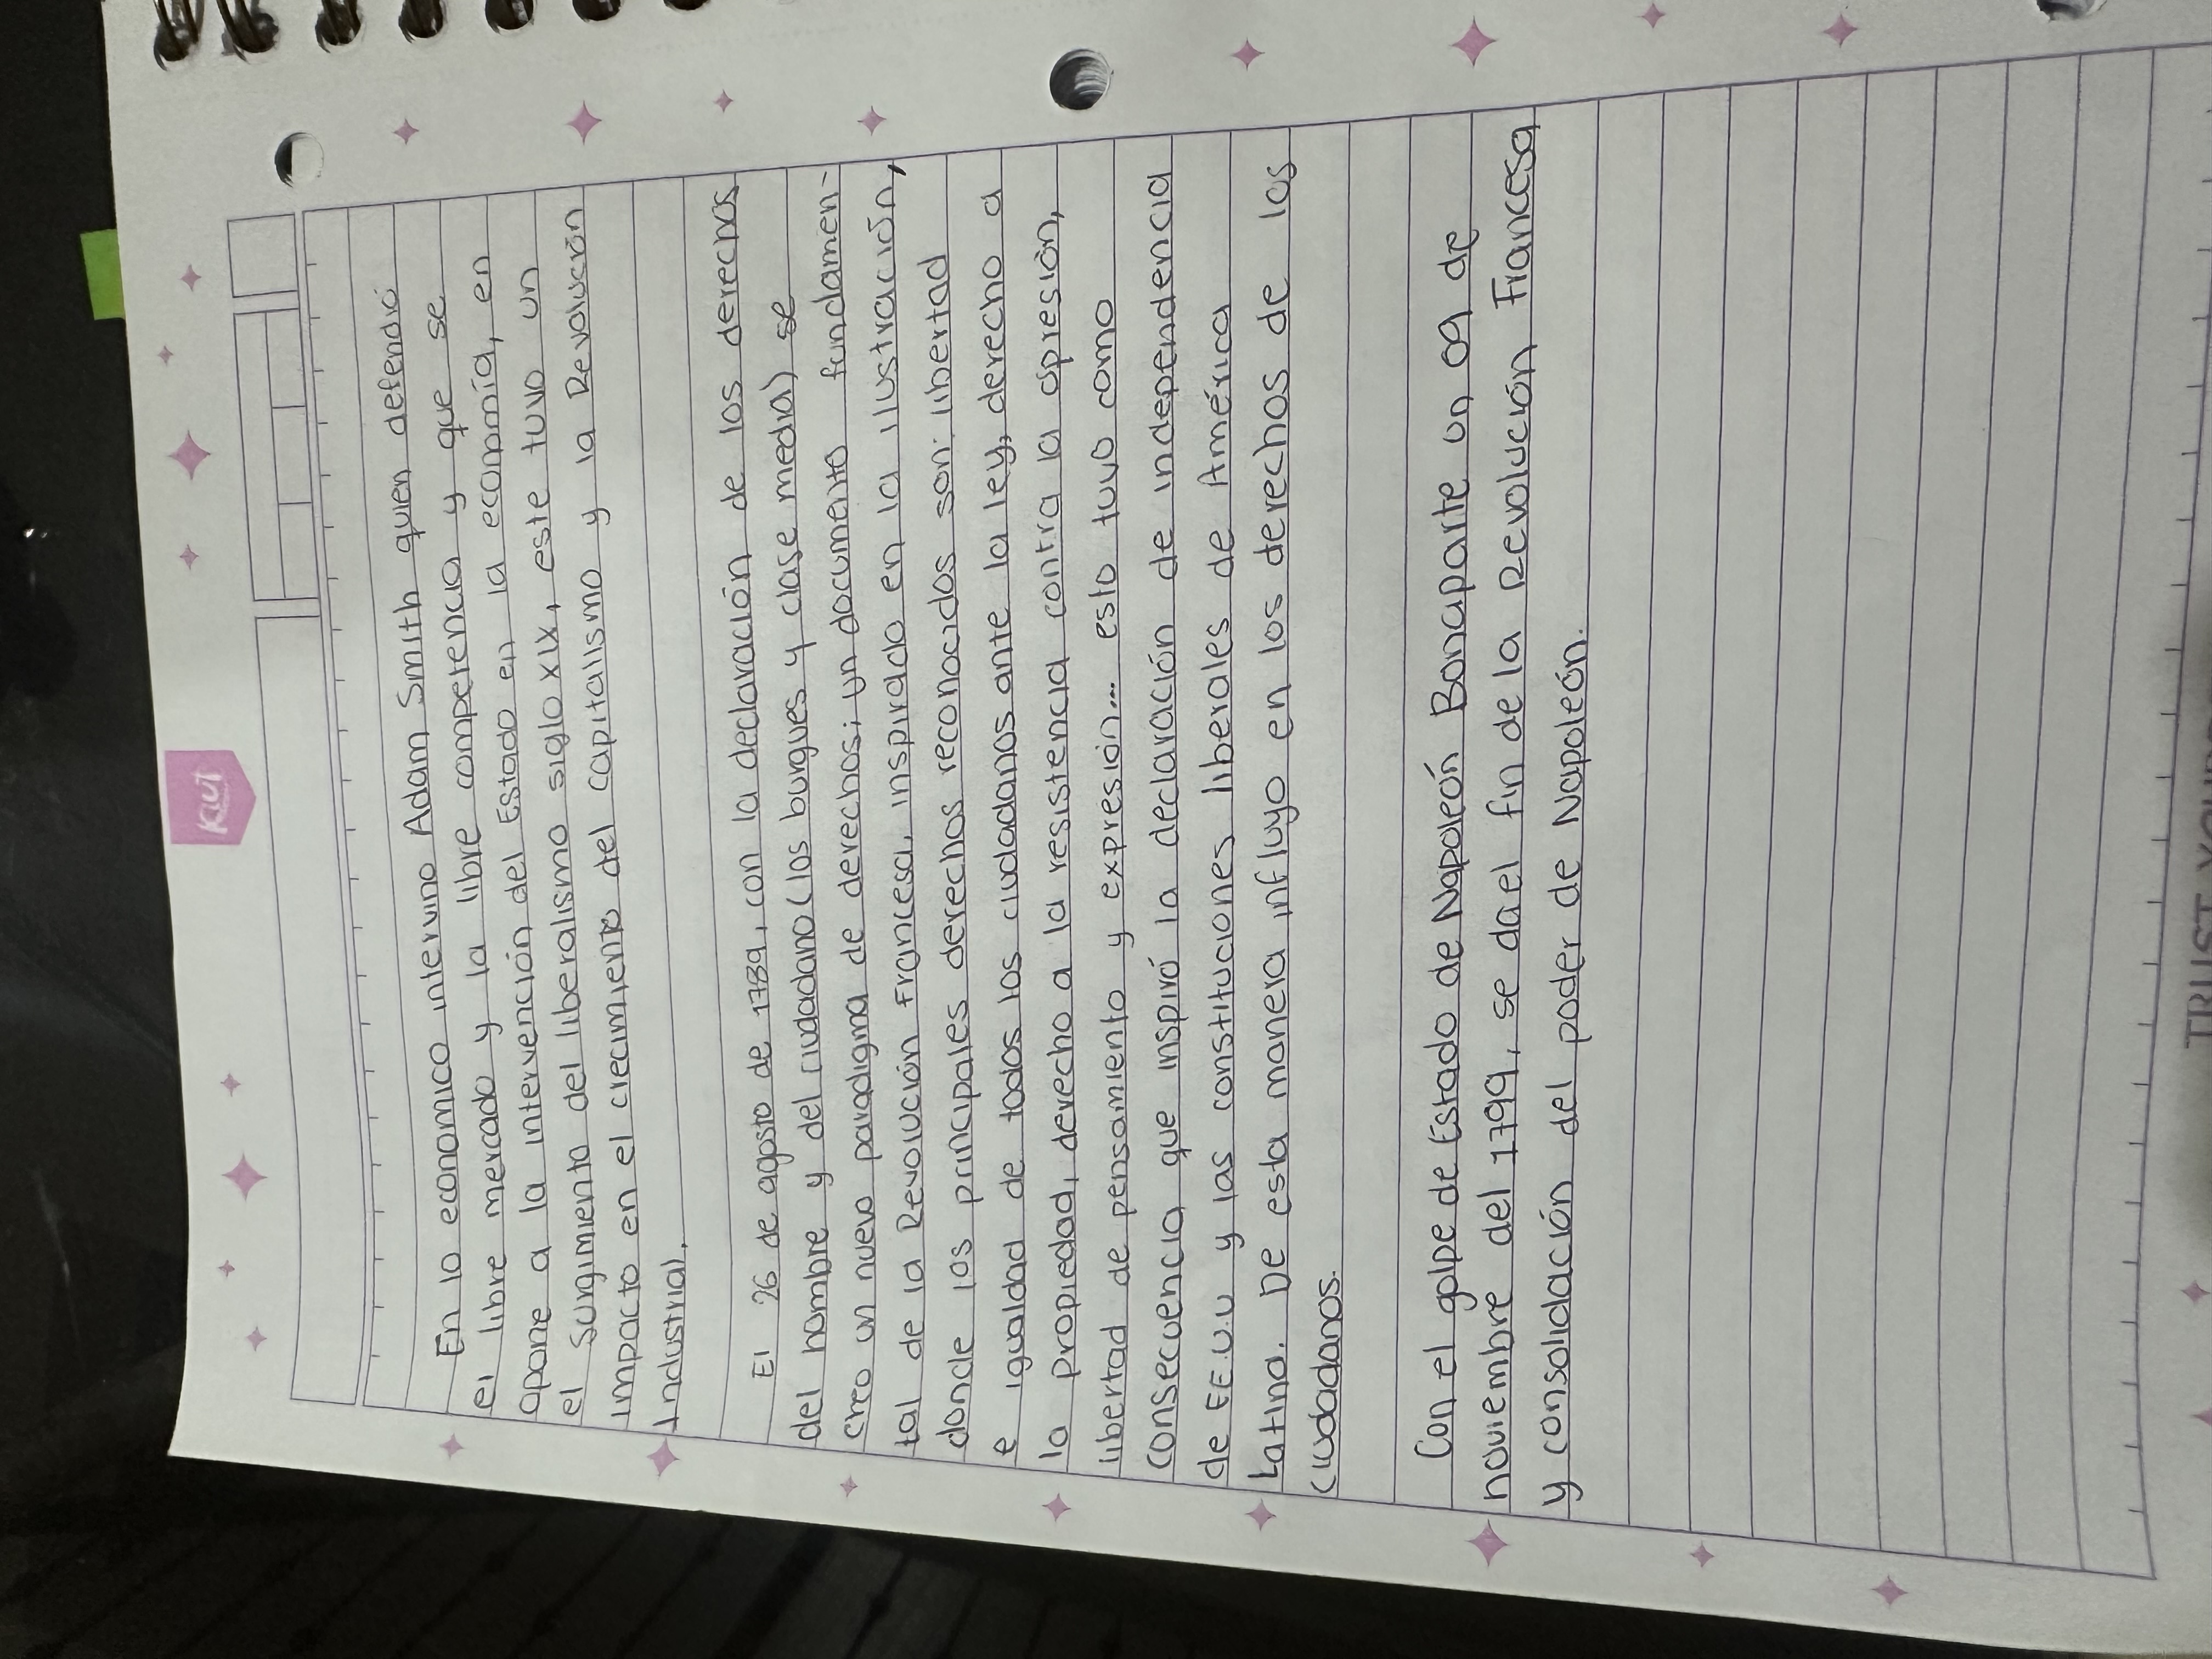 Kiut
En lo economico intervino Adam Smith quien defendió
el libre mercado y la libre competencia y que se
opone a la intervención del Estado en la economía, en
el surgimiento del liberalismo siglo XIX, este tuvo un
impacto en el crecimiento del capitalismo y la Revolución
Industrial.
El 26 de agosto de 1789, con la declaración de los derechos
del hombre y del ciudadano (los burgues y clase media) se
creo un nuevo paradigma de derechos; un documento fundamen-
tal de la Revolución Francesa, inspirado en la ilustración,
donde los principales derechos reconocidos son: libertad
e igualdad de todos los ciudadanos ante la ley, derecho a
la propiedad, derecho a la resistencia contra la opresión,
libertad de pensamiento y expresión... esto tuvo como
consecuencia que inspiró la declaración de independencia
de EE.U.U y las constituciones liberales de América
Latina. De esta manera influyo en los derechos de los
ciudadanos.
Con el golpe de Estado de Napoleón Bonaparte un 09 de
noviembre del 1799, se da el fin de la Revolución Francesa
y consolidación del poder de Napoleón.